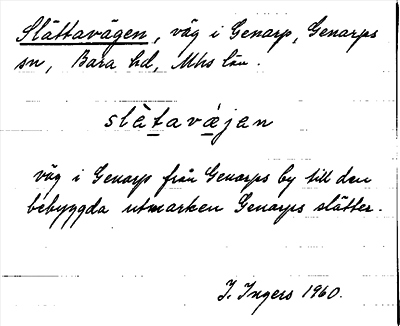 Slättavägen, väg i Genarp, Genarps
sn, Bara hd, Mhs län.
slàtavæ̀jan
väg i Genarp från Genarps by till den
bebyggda utmarken Genarps slätter.
I. Ingers 1960.